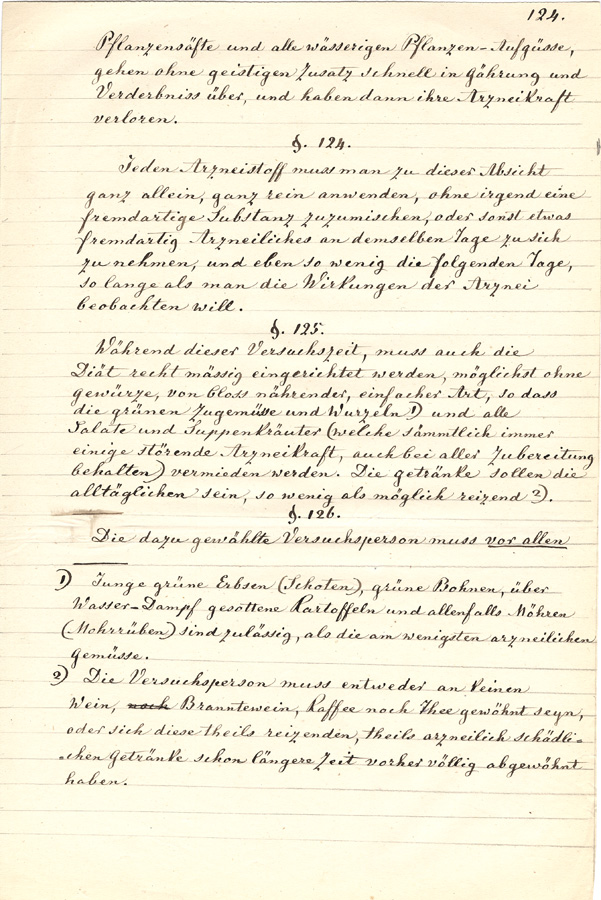 124.
Pflanzensäfte und alle wässerigen Pflanzen-Aufgüsse,
gehen ohne geistigen Zusatz schnell in Gährung und
Verderbniss über, und haben dann ihre Arzneikraft
verloren.
§. 124.
Jeden Arzneistoff muss man zu dieser Absicht
ganz allein, ganz rein anwenden, ohne irgend eine
fremdartige Substanz zuzumischen, oder sonst etwas
fremdartig Arzneiliches an demselben Tage zu sich
zu nehmen, und eben so wenig die folgenden Tage,
so lange als man die Wirkungen der Arznei
beobachten will.
§. 125.
Während dieser Versuchszeit, muss auch die
Diät recht mässig eingerichtet werden, möglichst ohne
Gewürze, von bloss nährender, einfacher Art, so dass
die grünen Zugemüse und Wurzeln 1) und alle
Salate und Suppenkräuter (welche sämmtlich immer
einige störende Arzneikraft, auch bei aller Zubereitung
behalten) vermieden werden. Die Getränke sollen die
alltäglichen sein, so wenig als möglich reizend 2).
§. 126.
Die dazu gewählte Versuchsperson muss vor allen
1) Junge grüne Erbsen (Schoten), grüne Bohnen, über
Wasser-Dampf gesottene Kartoffeln und allenfalls Möhren
(Mohrrüben) sind zulässig, als die am wenigsten arzneilichen
Gemüsse.
2) Die Versuchsperson muss entweder an keinen
Wein, noch Branntewein, Kaffee noch Thee gewöhnt seyn,
oder sich diese theils reizenden, theils arzneilich schädli=
=chen Getränke schon längere Zeit vorher völlig abgewöhnt
haben.